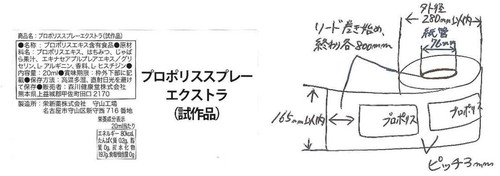 商品名：プロポリススプレーエクストラ(試作品)
●名称：プロポリスエキス含有食品●原材
料名：プロポリスエキス、はちみつ、じゃば
ら果汁、エキナセアプルプレアエキス／グリ
セリン、L-アルギニン、香料、L-ヒスチジン●
内容量：20ml●賞味期限：枠外下部に記
載●保存方法：高温多湿、直射日光を避け
て保存●販売者：森川健康堂株式会社
熊本県上益城郡甲佐町田口2170
製造所：栄新薬株式会社 守山工場
名古屋市守山区新守西716番地
栄養成分表示
20ml当たり
エネルギー 80kcal
たんぱく質 0.2g 脂
質 0g 炭水化物
食塩相当量 0g
プロポリススプレー
エクストラ
(試作品)
リード巻き始め、
終わり各800mm
外径
280mm以内
紙管
76mm
165mm以内
プロポリス
プロポリス
ピッチ3mm